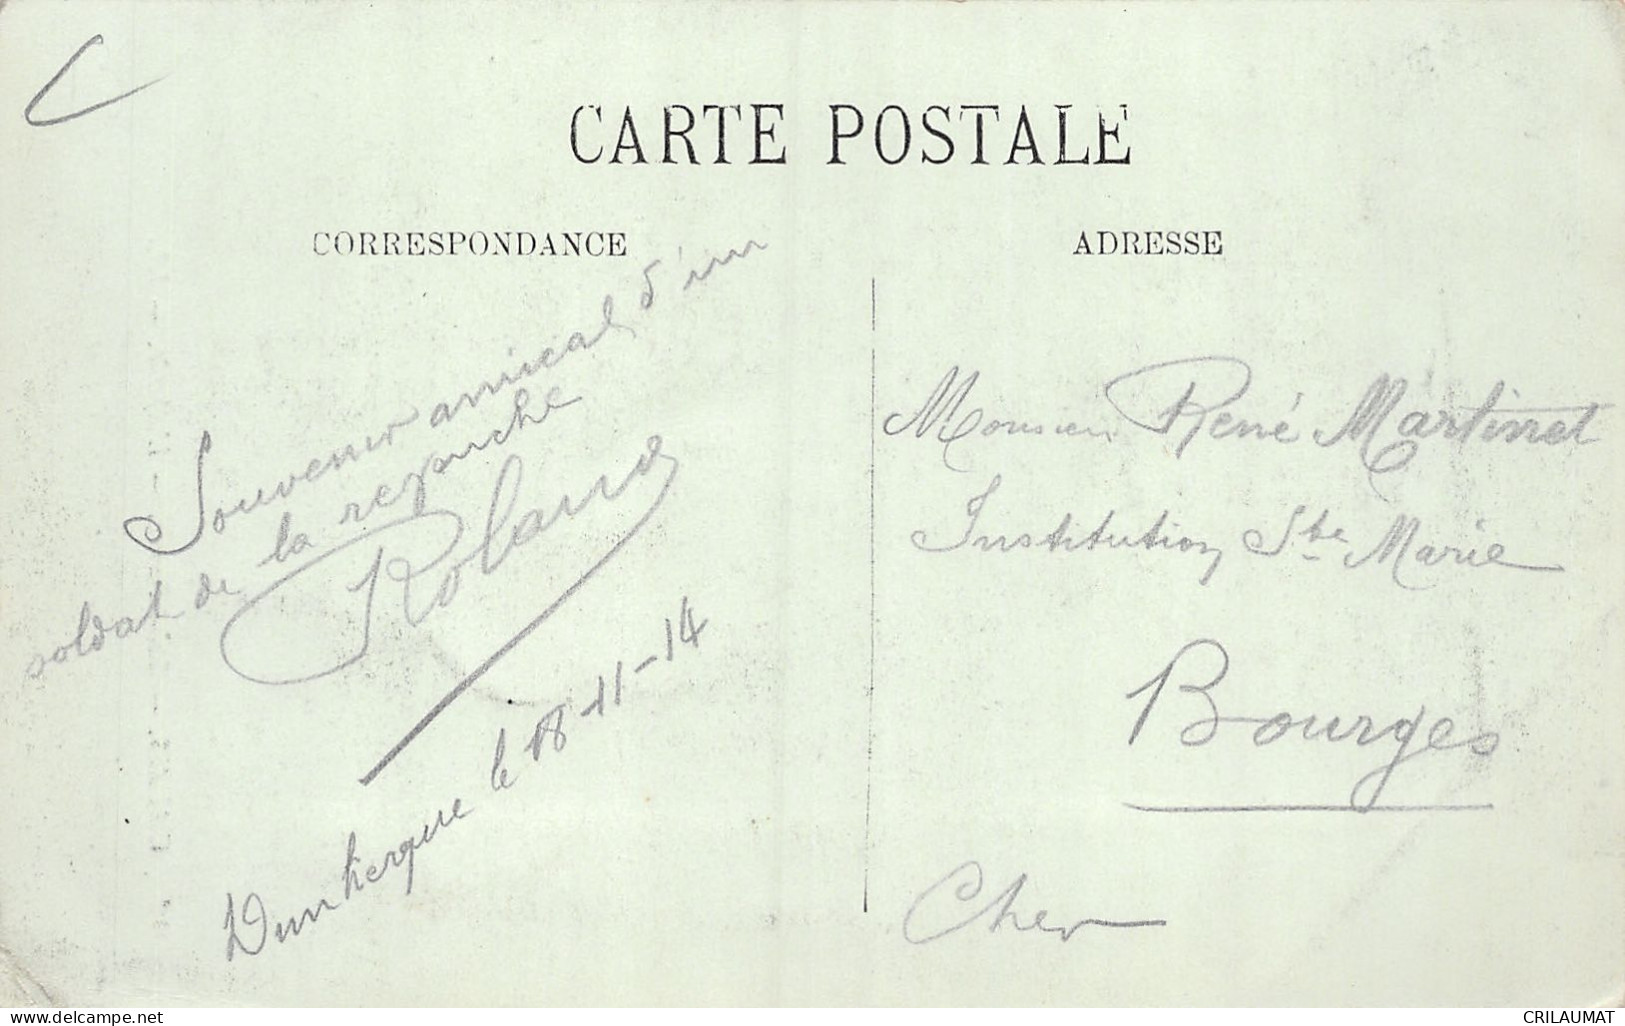 CARTE POSTALE
CORRESPONDANCE
Souvenir amical d'un
soldat de la revanche
Roland
Dunkerque le 18-11-14
ADRESSE
Monsieur René Martinet
Institution Ste Marie
Bourges
Cher
www.delcampe.net
CRILAUMAT